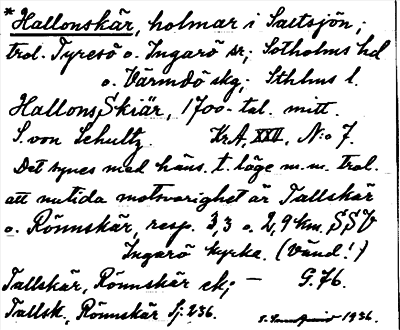 * Hallonskär, holmar i Saltsjön;
trol. Tyresö o. Ingarö sr; Sotholms hd
o. Värmdö skg; Sthlms l.
Hallons Skiär, 1700-tal. mitt.
S. von Schultz. KrA, XXV, N:o 7.
Det synes med häns. t. läge m.m. trol.
att nutida motsvarighet är Tallskär
o. Rönnskär, resp. 3,3 o. 2,9 km. SSV
Ingarö kyrka. (Vänd!)
Tallskär, Rönnskär ek; — G.76.
Tallsk., Rönnskär Sj. 236.
1936.